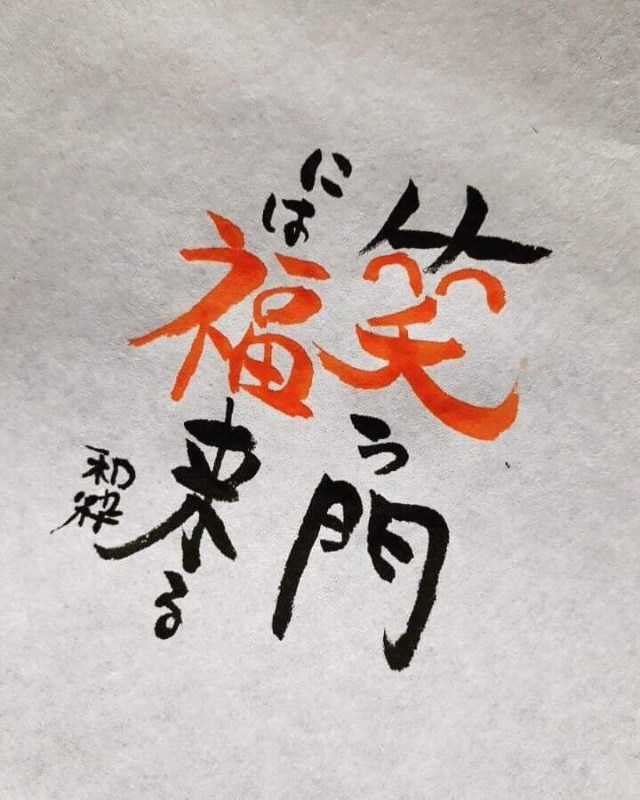 笑う門
には福来る
和粋